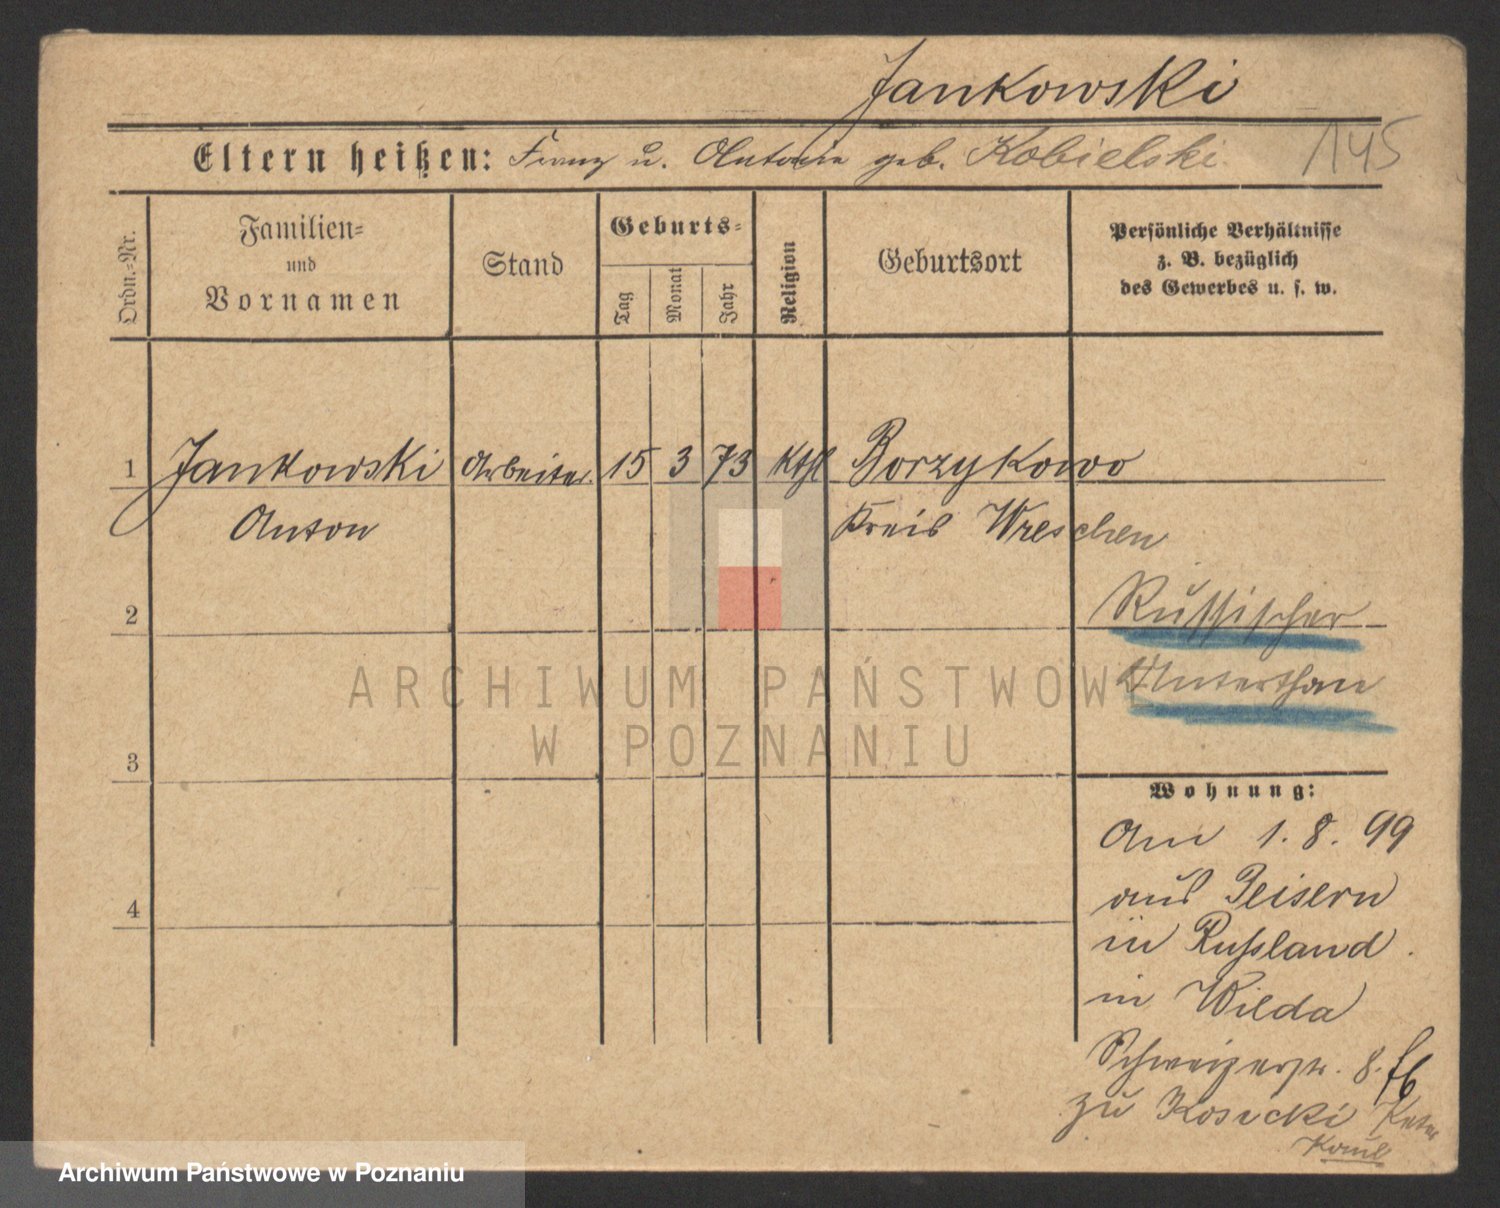 Jankowski
Eltern heißen: Franz u. Antonie geb. Kobielski
145
Ordn.-Nr.
Familien-
und
Vornamen
Stand
Geburts-
Tag
Monat
Jahr
Religion
Geburtsort
Persönliche Verhältnisse
z. B. bezüglich
des Gewerbes u. s. w.
1 Jankowski Arbeiter 15 3 73 kthl Borzykowo
Anton Kreis Wreschen
2 Russischer
Unterthan
ARCHIWUM PAŃSTWOWE
W POZNANIU
3
Wohnung:
Am 1. 8. 99
aus Peisern
4
in Russland.
in Wilda
Schweizerstr. 8.
zu Kosicki
Archiwum Państwowe w Poznaniu